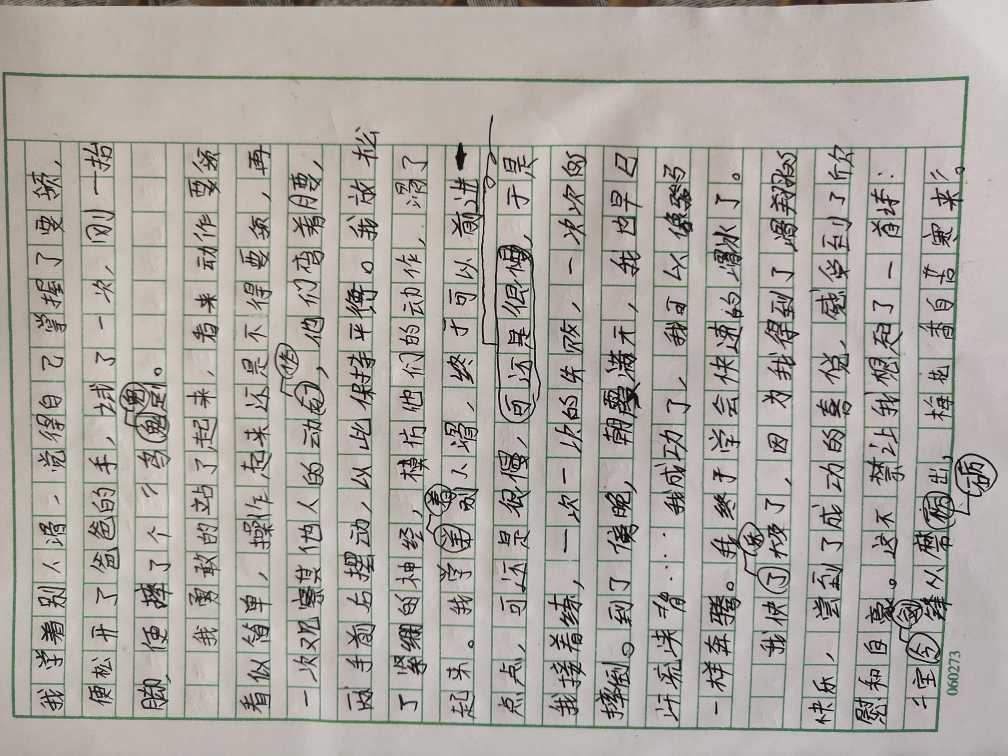 我学着别人滑，觉得自己掌握了要领，
便松开了爸爸的手，试了一次，刚一抬
脚，便摔了个？鸟。
我勇敢的站了起来，看来动作要领
看似简单，操作起来还是不得要领，再
一次观察其他人的动作，他们弯着腰，
两手前后摆动，以此保持平衡。我放松
了紧绷的神经，模仿他们的动作，滑了
起来。我学着别人滑，终于可以前进
点点，可还是很慢，可还是很慢，于是
我接着练，一次一次的失败，一次次的
摔倒。到了傍晚，朝霞满天，我内早已
汗流浃背……我成功了，我可以像骏马
一样奔腾。我终于学会快速的滑冰了。
我快乐极了，因为我得到了滑翔的
快乐，尝到了成功的喜悦，感受到了欣
慰和自豪。这不禁让我想起了一首诗：
“宝剑锋从磨砺出，梅花香自苦寒来”。
060273